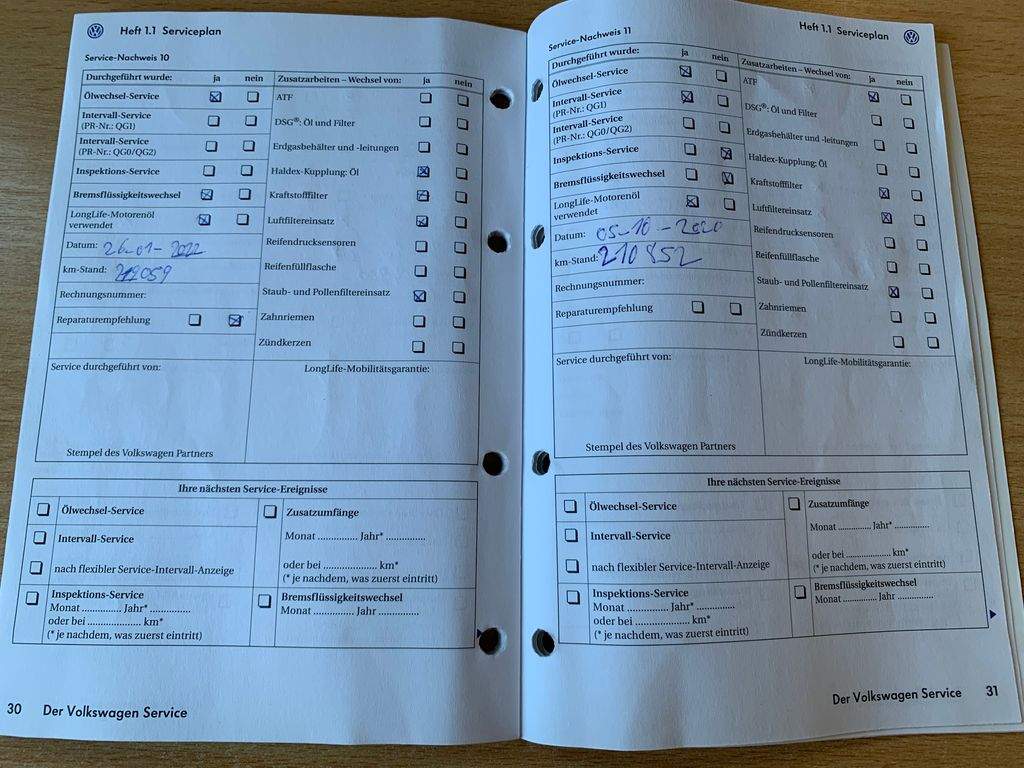 Heft 1.1 Serviceplan
Service-Nachweis 10
Durchgeführt wurde: ja nein
Ölwechsel-Service
Intervall-Service
(PR-Nr.: QG1)
Intervall-Service
(PR-Nr.: QG0/QG2)
Inspektions-Service
Bremsflüssigkeitswechsel
LongLife-Motorenöl
verwendet
Datum: 26-01-2022
km-Stand: 219059
Rechnungsnummer:
Reparaturempfehlung
Zusatzarbeiten – Wechsel von: ja nein
ATF
DSG®: Öl und Filter
Erdgasbehälter und -leitungen
Haldex-Kupplung: Öl
Kraftstofffilter
Luftfiltereinsatz
Reifendrucksensoren
Reifenfüllflasche
Staub- und Pollenfiltereinsatz
Zahnriemen
Zündkerzen
Service durchgeführt von:
LongLife-Mobilitätsgarantie:
Stempel des Volkswagen Partners
Ihre nächsten Service-Ereignisse
Ölwechsel-Service
Intervall-Service
nach flexibler Service-Intervall-Anzeige
Zusatzumfänge
Monat ............... Jahr* ...............
oder bei .................... km*
(* je nachdem, was zuerst eintritt)
Inspektions-Service
Monat ............... Jahr* ...............
oder bei .................... km*
(* je nachdem, was zuerst eintritt)
Bremsflüssigkeitswechsel
Monat ............... Jahr ...............
30 Der Volkswagen Service
Heft 1.1 Serviceplan
Service-Nachweis 11
Durchgeführt wurde: ja nein
Ölwechsel-Service
Intervall-Service
(PR-Nr.: QG1)
Intervall-Service
(PR-Nr.: QG0/QG2)
Inspektions-Service
Bremsflüssigkeitswechsel
LongLife-Motorenöl
verwendet
Datum: 05-10-2020
km-Stand: 210852
Rechnungsnummer:
Reparaturempfehlung
Zusatzarbeiten – Wechsel von: ja nein
ATF
DSG®: Öl und Filter
Erdgasbehälter und -leitungen
Haldex-Kupplung: Öl
Kraftstofffilter
Luftfiltereinsatz
Reifendrucksensoren
Reifenfüllflasche
Staub- und Pollenfiltereinsatz
Zahnriemen
Zündkerzen
Service durchgeführt von:
LongLife-Mobilitätsgarantie:
Stempel des Volkswagen Partners
Ihre nächsten Service-Ereignisse
Ölwechsel-Service
Intervall-Service
nach flexibler Service-Intervall-Anzeige
Zusatzumfänge
Monat ............... Jahr* ...............
oder bei .................... km*
(* je nachdem, was zuerst eintritt)
Inspektions-Service
Monat ............... Jahr* ...............
oder bei .................... km*
(* je nachdem, was zuerst eintritt)
Bremsflüssigkeitswechsel
Monat ............... Jahr ...............
Der Volkswagen Service 31